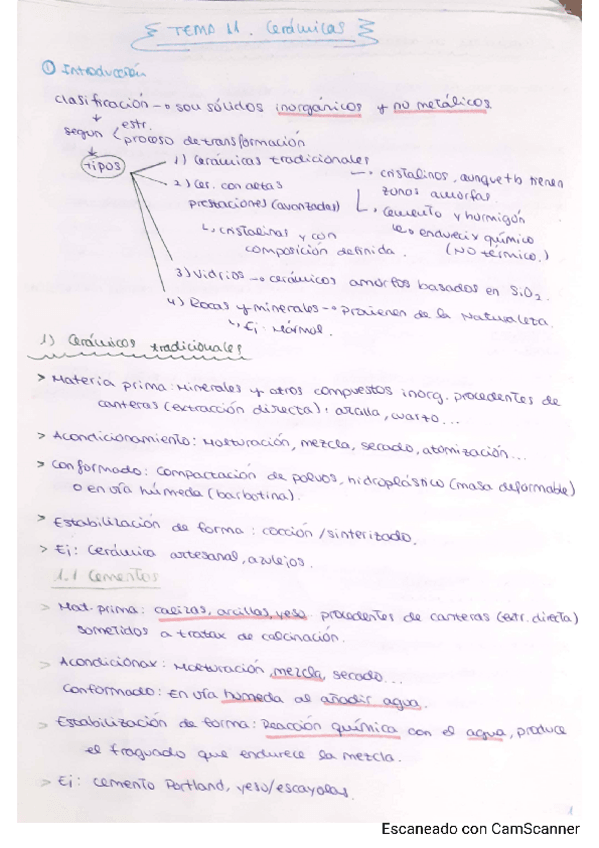 TEMA 11. Cerámicas
① Introducción
Clasificación → son sólidos inorgánicos y no metálicos
según estr.
proceso de transformación
tipos
1) Cerámicas tradicionales
→ cristalinos, aunque tb tienen
zonas amorfas
→ Cemento y hormigón
↳ endurecix químico
(NO térmico.)
2) Cer. con altas
prestaciones (avanzadas)
↳ cristalinas y con
composición definida.
3) Vidrios → cerámicos amorfos basados en SiO2.
4) Rocas y minerales → provienen de la Naturaleza.
↳ Ej: Mármol.
1) Cerámicos tradicionales
> Materia prima: Minerales y otros compuestos inorg. procedentes de
canteras (extracción directa): arcilla, cuarzo...
> Acondicionamiento: Molturación, mezcla, secado, atomización...
> Conformado: Compactación de polvos, hidroplástico (masa deformable)
o en vía húmeda (barbotina).
> Estabilización de forma: cocción/sinterizado.
> Ej: Cerámica artesanal, azulejos.
1.1 Cementos
> Mat. prima: calizas, arcillas, yeso procedentes de canteras (extr. directa)
sometidos a tratax de calcinación.
> Acondicionax: Molturación, mezcla, secado...
Conformado: En vía húmeda al añadir agua.
> Estabilización de forma: Reacción química con el agua, produce
el fraguado que endurece la mezcla.
> Ej: cemento Portland, yeso/escayolas.
1
Escaneado con CamScanner